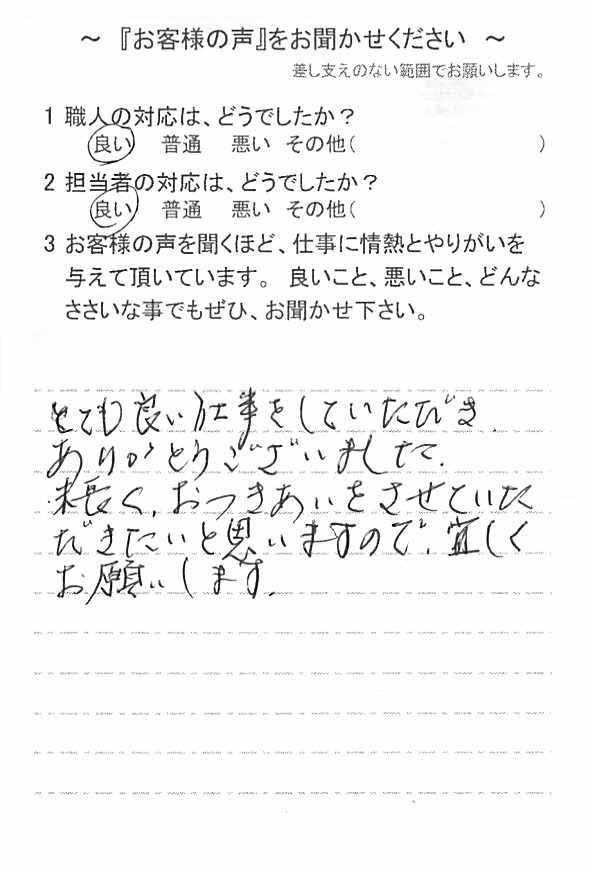 ～ 『お客様の声』をお聞かせください ～
差し支えのない範囲でお願いします。
1 職人の対応は、どうでしたか？
良い 普通 悪い その他（ ）
2 担当者の対応は、どうでしたか？
良い 普通 悪い その他（ ）
3 お客様の声を聞くほど、仕事に情熱とやりがいを
与えて頂いています。 良いこと、悪いこと、どんな
ささいな事でもぜひ、お聞かせ下さい。
とても良い仕事をしていただき、
ありがとうございました。
末長く、おつきあいをさせていた
だきたいと思いますので、宜しく
お願いします。